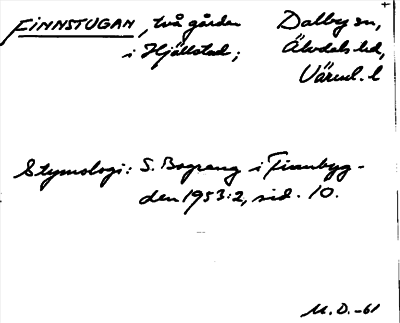 FINNSTUGAN, två gårdar Dalby sn,
i Hjällstad; Älvdals hd,
Värml. l
Etymologi: S. Bograng i Finnbyg-
den 1953:2, sid. 10.
M. O. -61